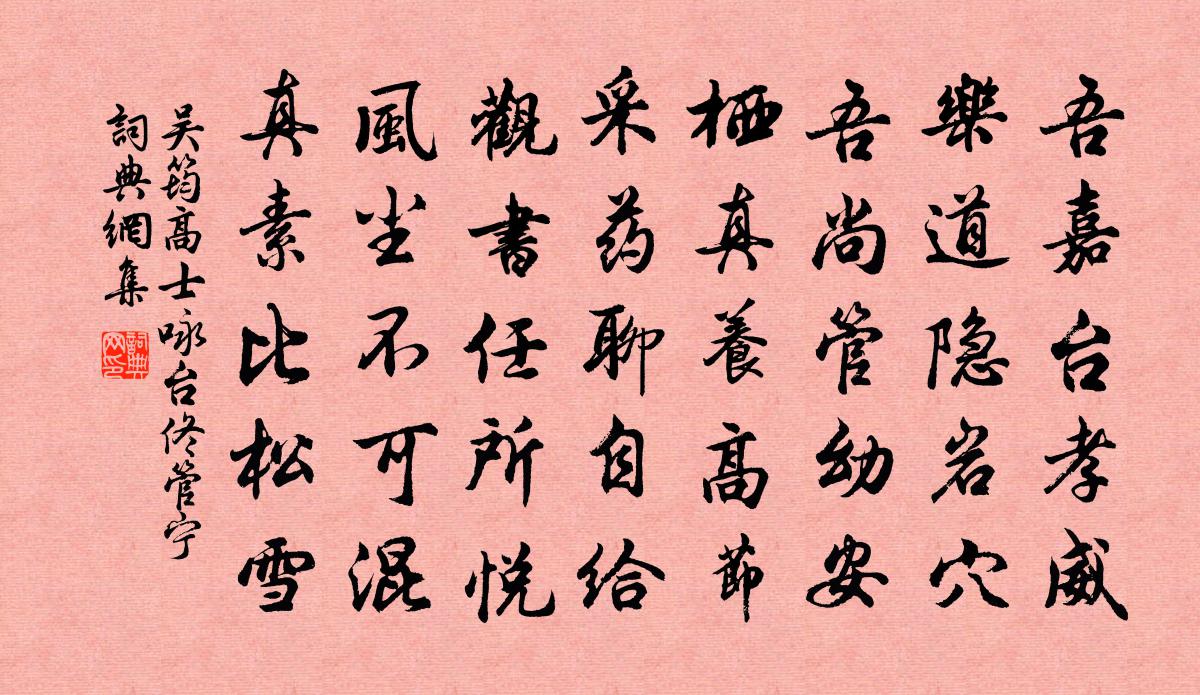 吾嘉台孝威
樂道隐岩穴
吾尚管幼安
栖真養高節
采药聊自给
觀書任所悦
風尘不可混
真素比松雪
吴筠高士咏台佟管宁
詞典網集
詞典
网印